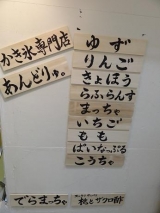 かき氷専門店
あんどりゅ。
ゆず
りんご
きょほう
らふらんす
まっちゃ
いちご
もも
ぱいなっぷる
こうちゃ
でらまっちゃ
桃とザクロ酢